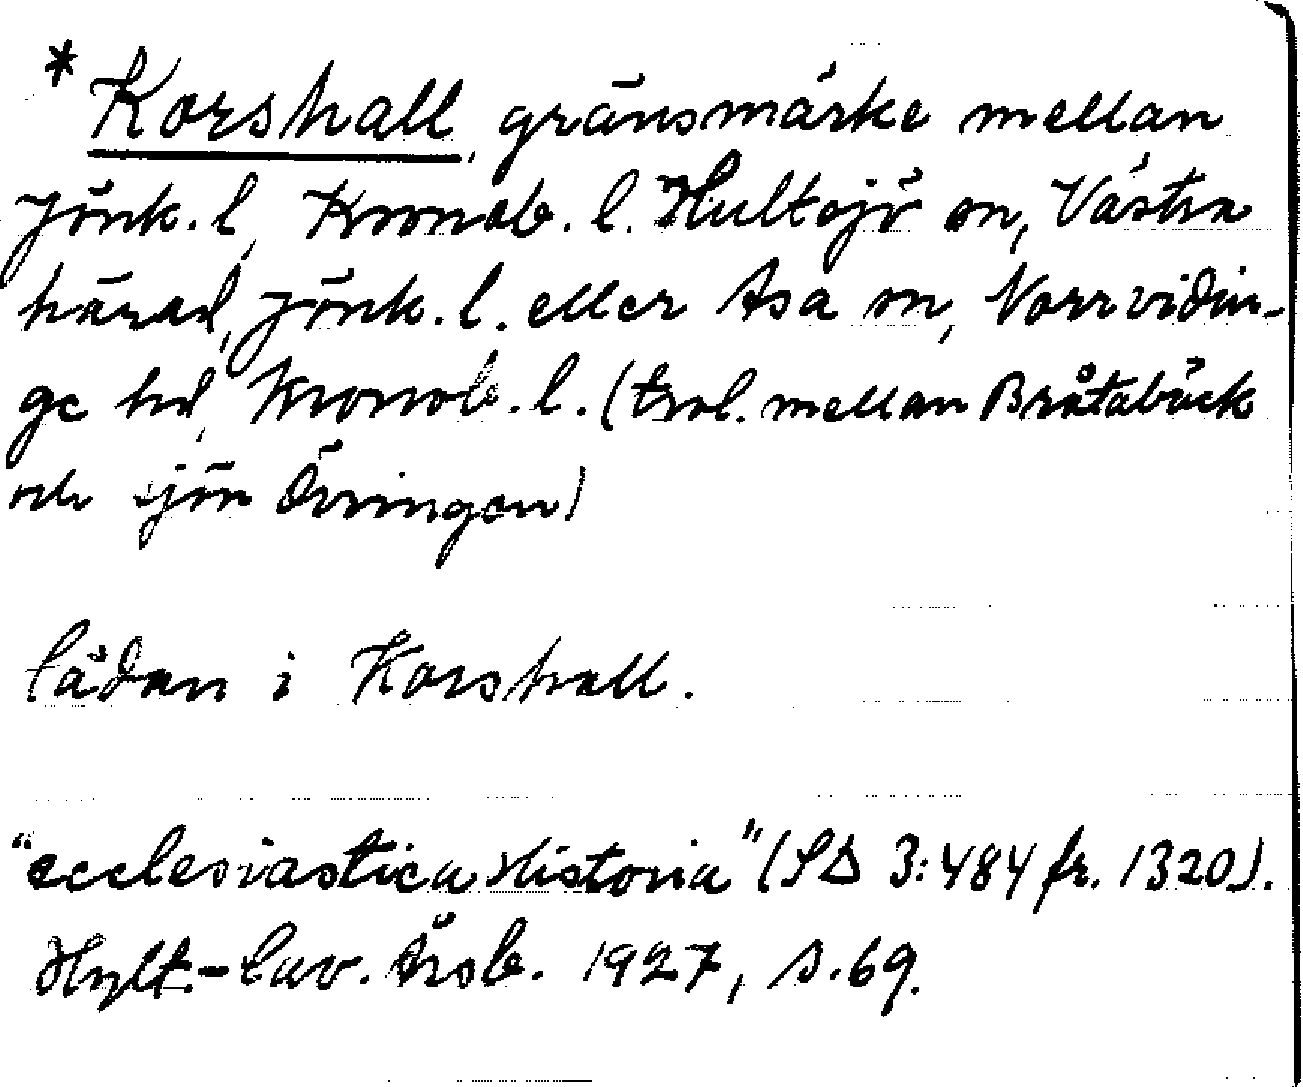 * Korshall, gränsmärke mellan
Jönk. l, Kronob. l. Hultsjö sn, Västra
härad, Jönk. l. eller Asa sn, Norrvidin-
ge hd, Kronob. l. (trol. mellan Bråtabäck
och sjön Övringen)
lådan i Korshall.
"ecclesiastica Historia" (SD 3:484 fr. 1320).
Hylt.-Cav. Årsb. 1927, s. 69.